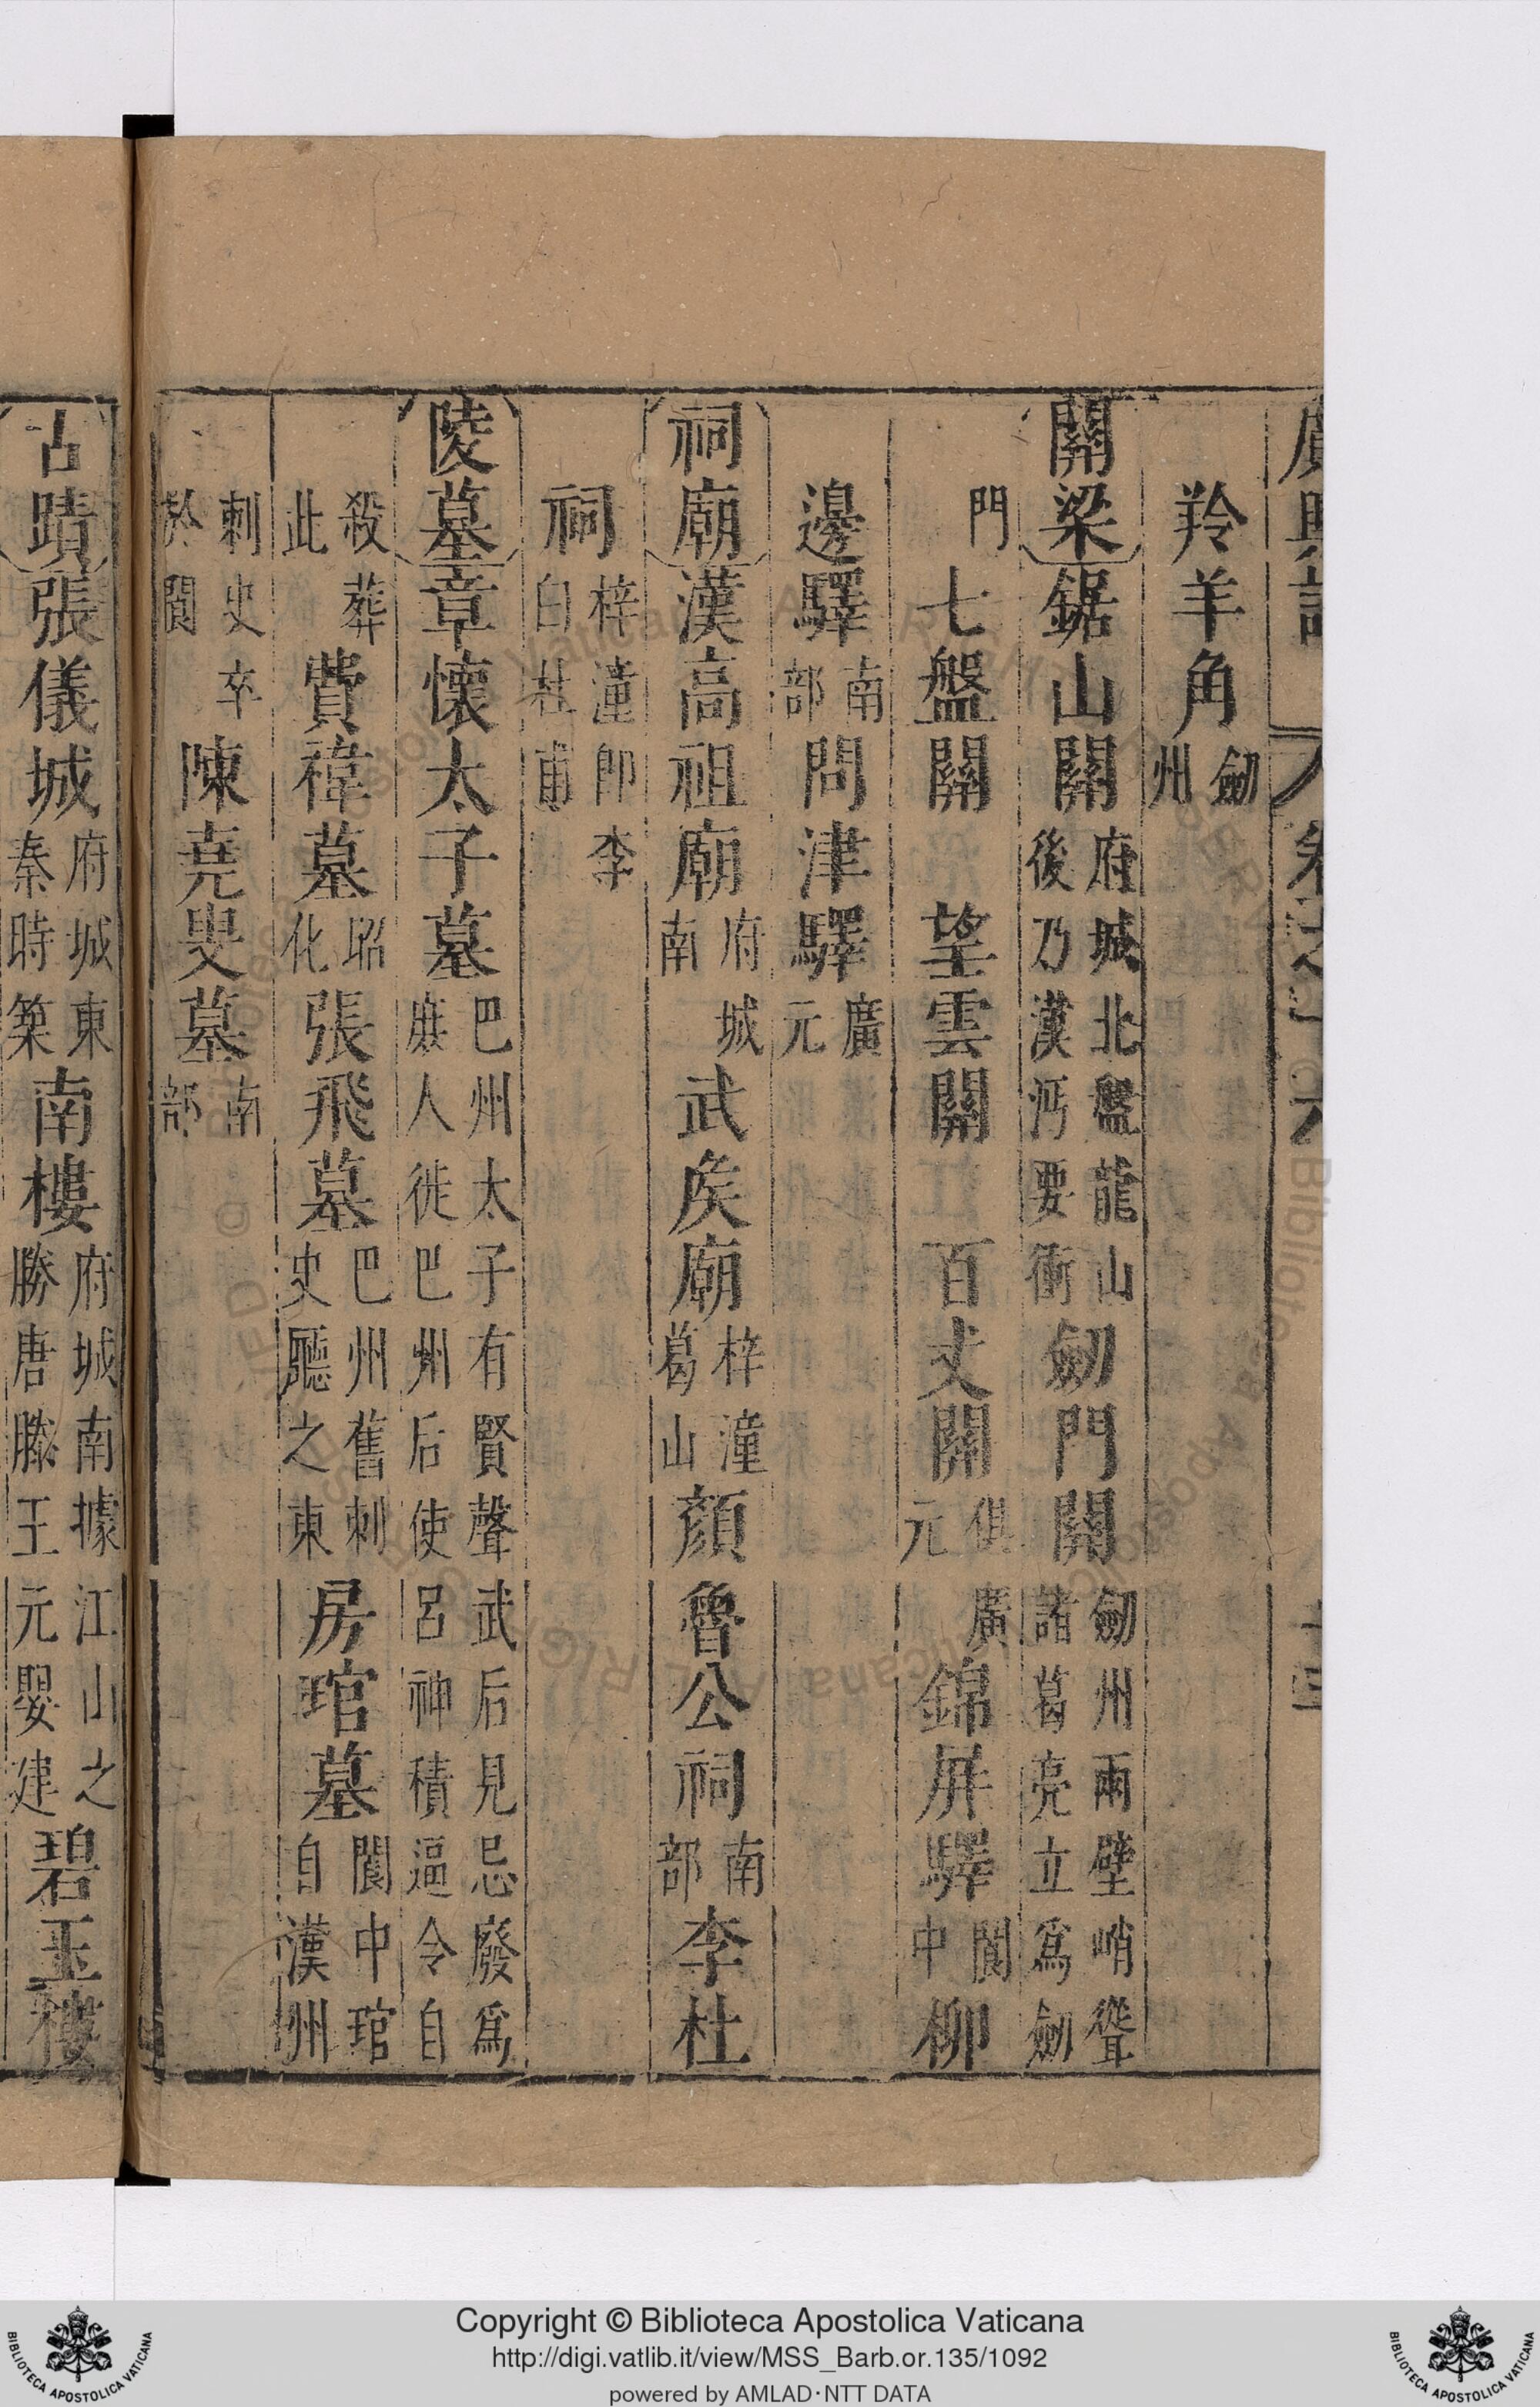 廣輿記 卷之十六
羚羊角 劒州
關梁 鋸山關 府城北盤龍山後乃漢沔要衝 劒門關 劒州兩壁峭聳諸葛亮立爲劒
門 七盤關 望雲關 百丈關 俱廣元 錦屏驛 閬中 柳
邊驛 南部 問津驛 廣元
祠廟 漢高祖廟 府城南 武矦廟 梓潼葛山 顏魯公祠 南部 李杜
祠 梓潼卽李白杜甫
陵墓 章懷太子墓 巴州太子有賢聲武后見忌廢爲庻人徙巴州后使呂神積逼令自
殺葬此 費禕墓 昭化 張飛墓 巴州舊刺史廳之東 房琯墓 閬中琯自漢州
刺史卒於閬 陳堯叟墓 南部
古蹟 張儀城 府城東秦時築 南樓 府城南據江山之勝唐滕王元嬰建 碧玉樓
Copyright © Biblioteca Apostolica Vaticana
http://digi.vatlib.it/view/MSS_Barb.or.135/1092
powered by AMLAD·NTT DATA
BIBLIOTECA APOSTOLICA VATICANA
BIBLIOTECA APOSTOLICA VATICANA